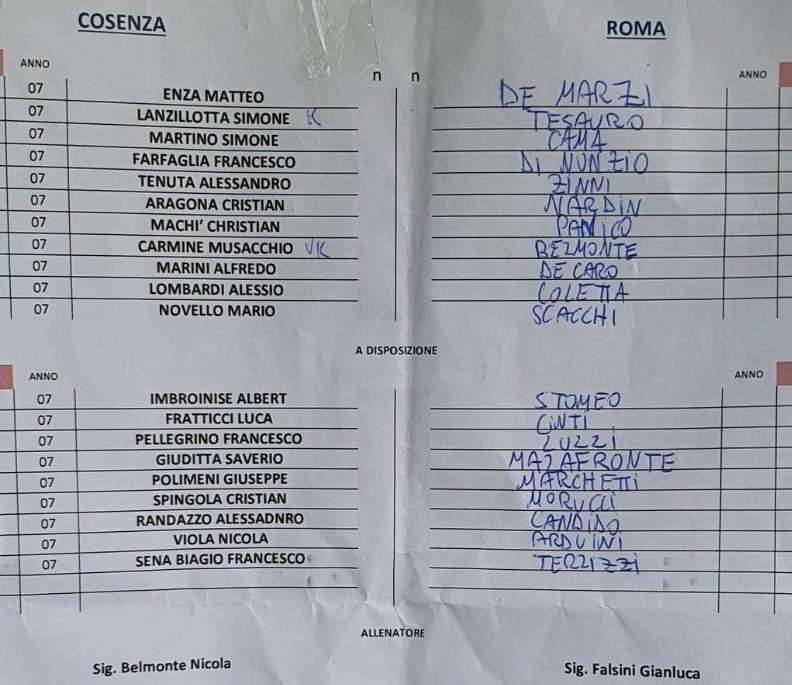 COSENZA ROMA
ANNO n n ANNO
07 ENZA MATTEO DE MARZI
07 LANZILLOTTA SIMONE K TESAURO
07 MARTINO SIMONE CAMA
07 FARFAGLIA FRANCESCO DI NUNZIO
07 TENUTA ALESSANDRO ZINNI
07 ARAGONA CRISTIAN NARDIN
07 MACHI' CHRISTIAN PANICO
07 CARMINE MUSACCHIO VK BELMONTE
07 MARINI ALFREDO DE CARO
07 LOMBARDI ALESSIO COLETTA
07 NOVELLO MARIO SCACCHI
A DISPOSIZIONE
ANNO ANNO
07 IMBROINISE ALBERT STOMEO
07 FRATTICCI LUCA CINTI
07 PELLEGRINO FRANCESCO LUZZI
07 GIUDITTA SAVERIO MAZAFRONTE
07 POLIMENI GIUSEPPE MARCHETTI
07 SPINGOLA CRISTIAN MORUCCI
07 RANDAZZO ALESSADNRO CANDIDO
07 VIOLA NICOLA ARDUINI
07 SENA BIAGIO FRANCESCO TERZIZZI
ALLENATORE
Sig. Belmonte Nicola Sig. Falsini Gianluca